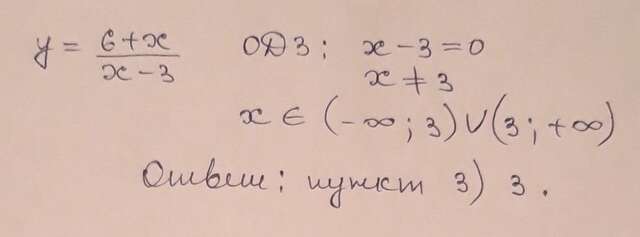 y = 6+x / x-3 ОДЗ: x-3=0
x ≠ 3
x ∈ (-∞; 3) ∪ (3; +∞)
Ответ: пункт 3) 3.